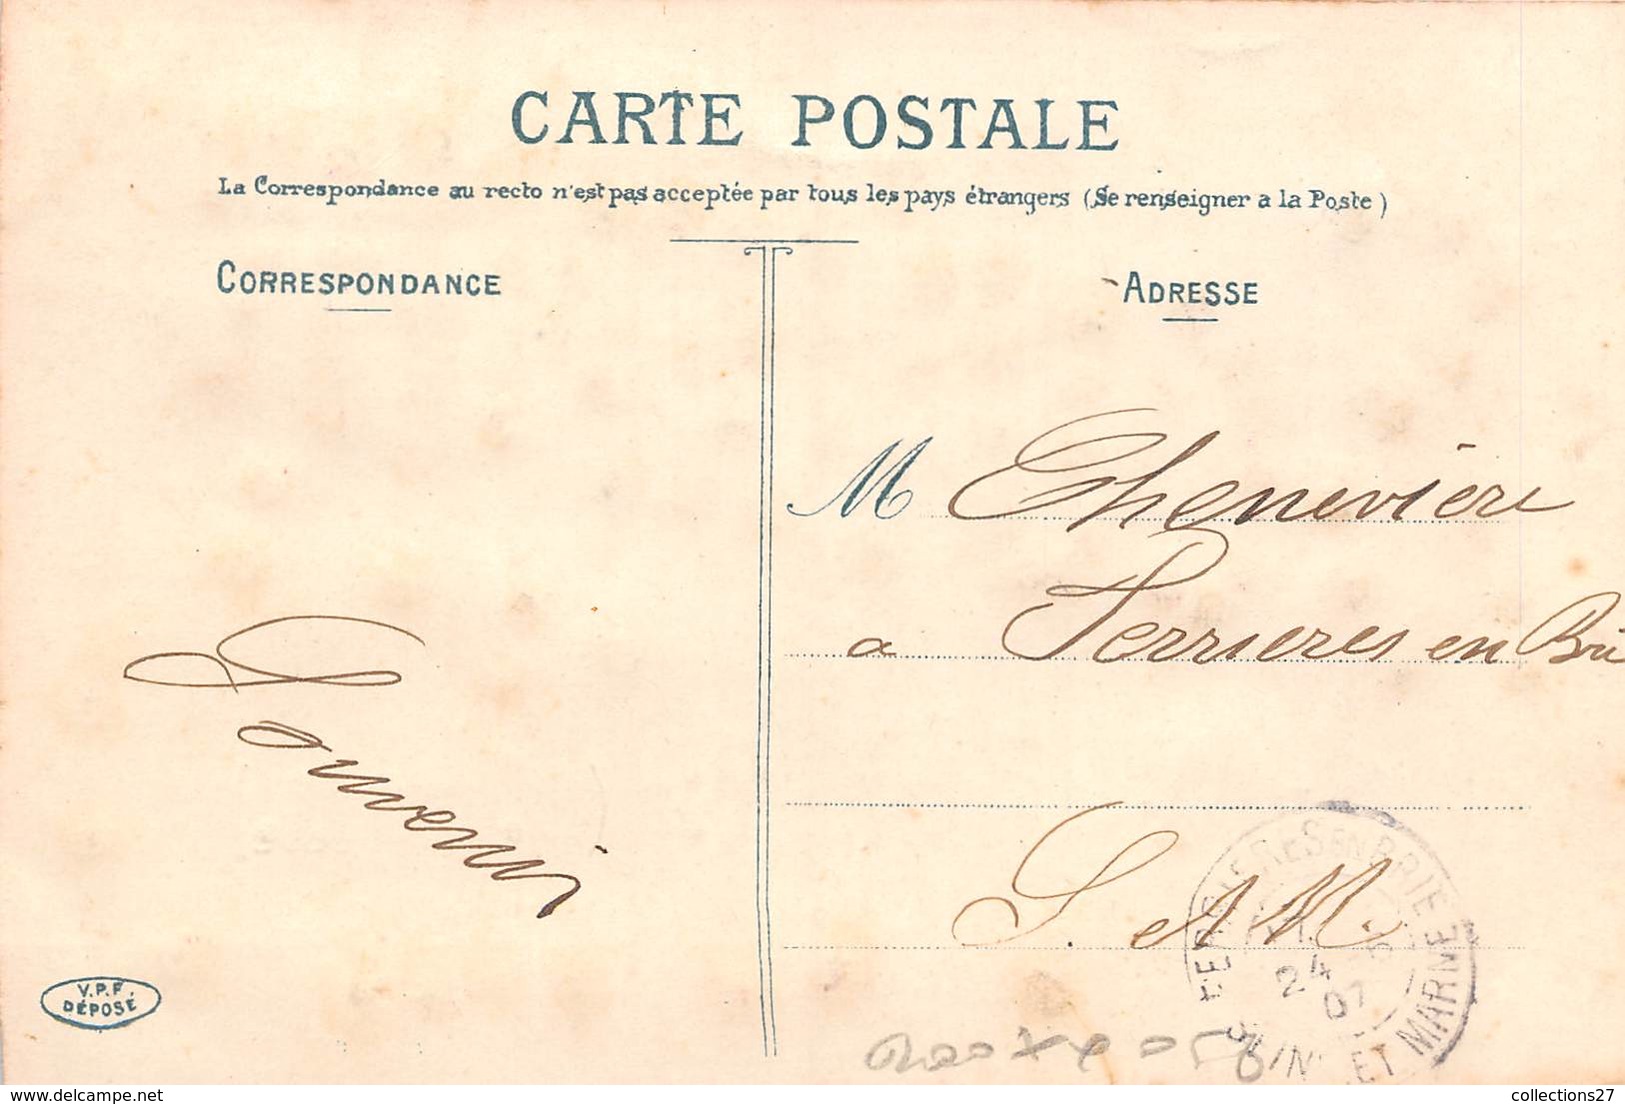 CARTE POSTALE
La Correspondance au recto n'est pas acceptée par tous les pays étrangers (Se renseigner a la Poste)
CORRESPONDANCE
ADRESSE
M Chenevière
a Ferrieres en Brie
Souvenir
S. et M.
FERRIERES EN BRIE
24
07
SEINE ET MARNE
V.P.F.
DÉPOSÉ
collections27